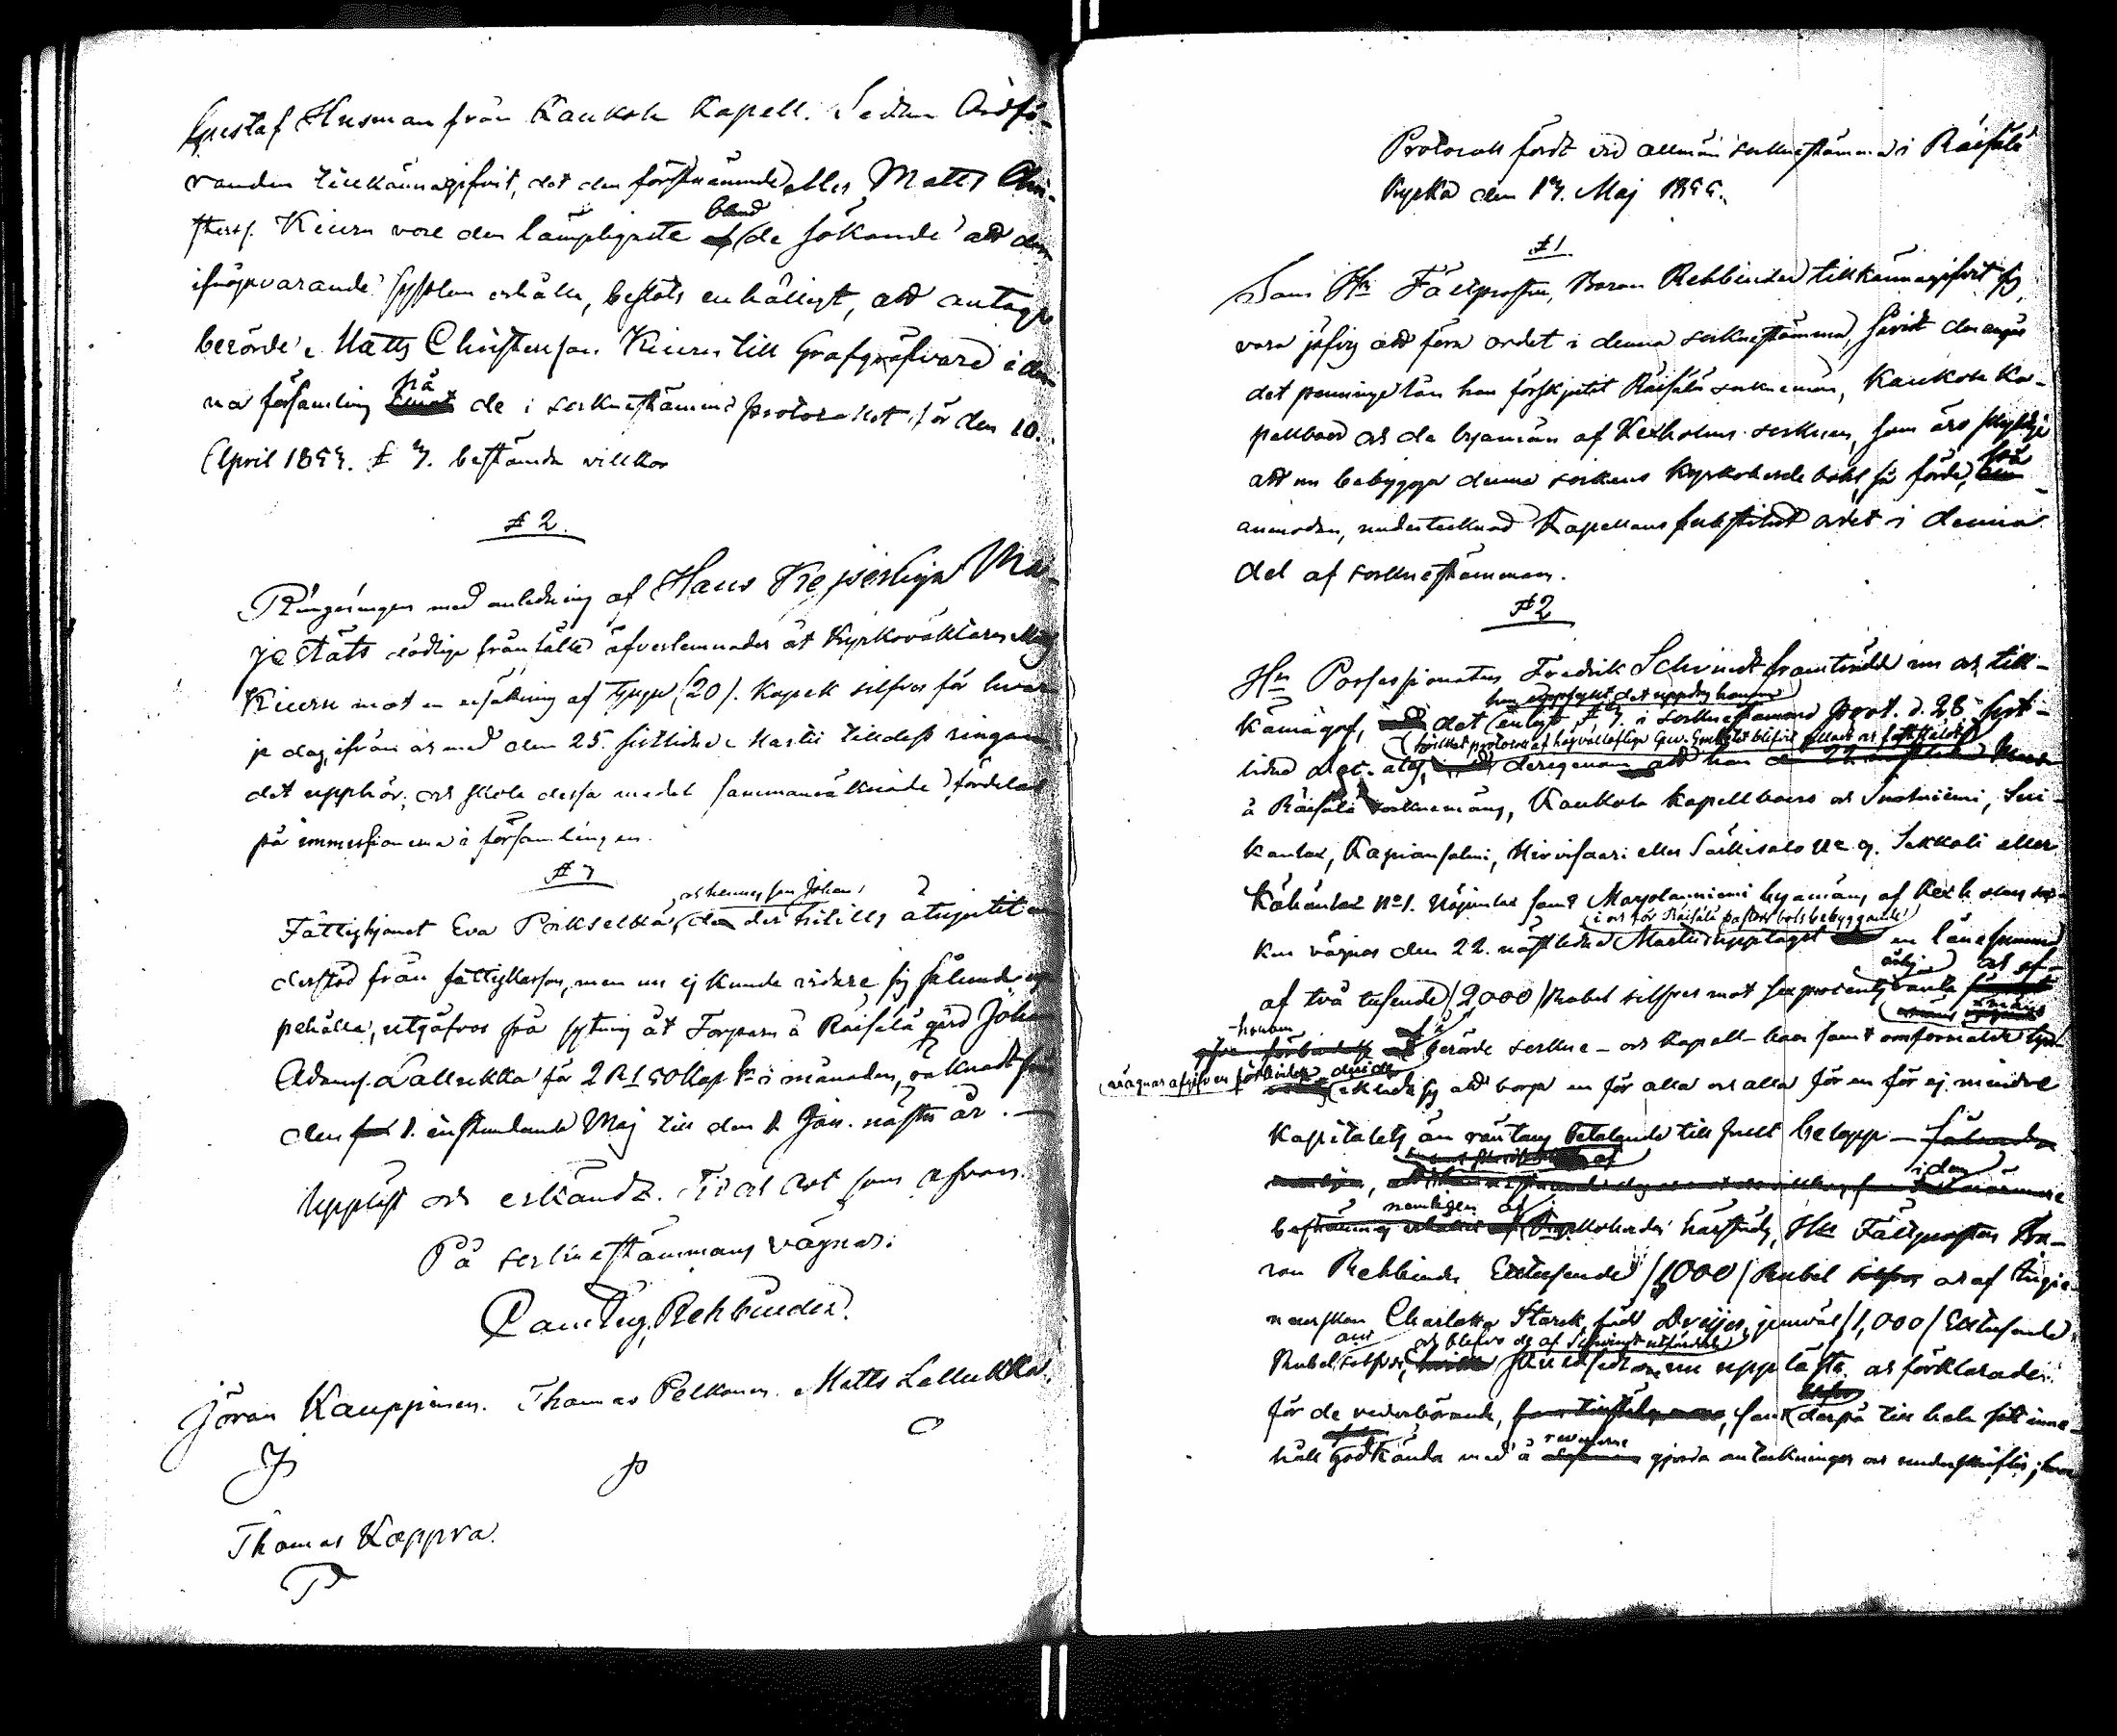 Gustaf Husman från Kaukola Kapell. Sedan Ordfö-
randen tillkännagifvit, det den förstnämnde eller Matts Chri-
sters. Kiuru vore den lämpligaste bland de sökande att den
ifrågavarande sysslan erhålla, beslöts enhälligt, att antaga
berörde Matts Christersson Kiuru till Grafgräfvare i den-
na församling på de i sockenestämmo protocollet för den 10.
April 1853. § 3. bestämda villkor
§ 2.
Ringningen med anledning af Hans Kejserliga Ma-
jestäts dödliga frånfälle öfverlemnades åt Kyrkoväktaren Matts
Kiuru mot en ersättning af tjugu (20). Kopek silfver för hvar-
je dag, ifrån och med den 25. sistlidne Martii tilldess ringan-
det upphör, och skola dessa medel sammanräknade fördelas
på immissionerna i församlingen.
§ 3
Fattighjonet Eva Pörkselkä, och hennes son Johan, der hitills åtnjutit un-
derstöd från fattigkassan, men nu ej kunde vidare sig sålunda up-
pehålla, utgåfvos på sytning åt Torparn å Räisälä gård Johan
Adams. Lallukka för 2 R 50 Kop Sr i månaden, räknadt från
den 1. instundande Maj till den 1. Jan. nästa år. —
Uppläst och erkändt. Tid och Ort som ofvan.
På sockenestämmans vägnar:
Carl Aug. Rehbinder.
Jöran Kauppinen. Thomas Pelkonen. Matts Lallukka.
Thomas Kæppra.
Protocoll fördt vid allmän sockenestämma i Räisälä
Kyrka den 13. Maj 1855.
§ 1
Som Hr Fältprosten, Baron Rehbinder tillkännagifvit sig
vara jäfvig att föra ordet i denna sockenestämma, såvidt den angår
det penningelån han förskjutit Räisälä sockenemän, Kaukola Ka-
pellboer och de byamän af Kexholms socken, som äro skyldige
att nu bebygga denna sockens Kyrkoherde bohl, så förde, på
anmodan, undertecknad Kapellans substitut ordet i denna
del af sockenestämman.
§ 2
Hr Possessionaten Fredrik Schvindt framträdde nu och till-
kännagaf, det han uppfyllt det uppdrag honom enligt § 3. i sockenestämmo prot. d. 28 sist-
lidne Oct. deregenom att han
å Räisälä sockenemäns, Kaukola Kapellboers och Suotniemi, Suu-
kanta, Kapiansalmi, Hirvisaari eller Särkisalo No 9. Sakkali eller
Kähäntae No 1. Näpinlax samt Marjolanniemi byamäns af Kexholms soc-
ken vägnar den 22. nästlidne Martii i och för Räisälä pastors bols bebyggande upptagit en lånesumma
af två tusende (2,000) Rubel silfver mot sex procents årlig ränta och af
honom å berörde sockne- och Kapell-boers samt omförmälde bya-
mäns vägnar afgifven förbindelse, deri de iklädt sig att borga en för alla och alla för en för ej mindre
Kapitalets än räntans betalande till fullt belopp —
nemligen af Kyrkoherden härstädes, Hr Fältprosten Ba-
ron Rehbinder Ettusende (1,000) Rubel och af Enge-
neurskan Charlotta Starck, född Dreijer, jemväl (1,000) Ettusende
Rubel silfver, och blefvo de af Schvindt utfärdade skuldsedlarne nu upplästa och förklarade
för de vederbörande, samt derpå till hela sitt inne-
håll godkända med å reverserne gjorda anteckningar och underskrifter; hvar